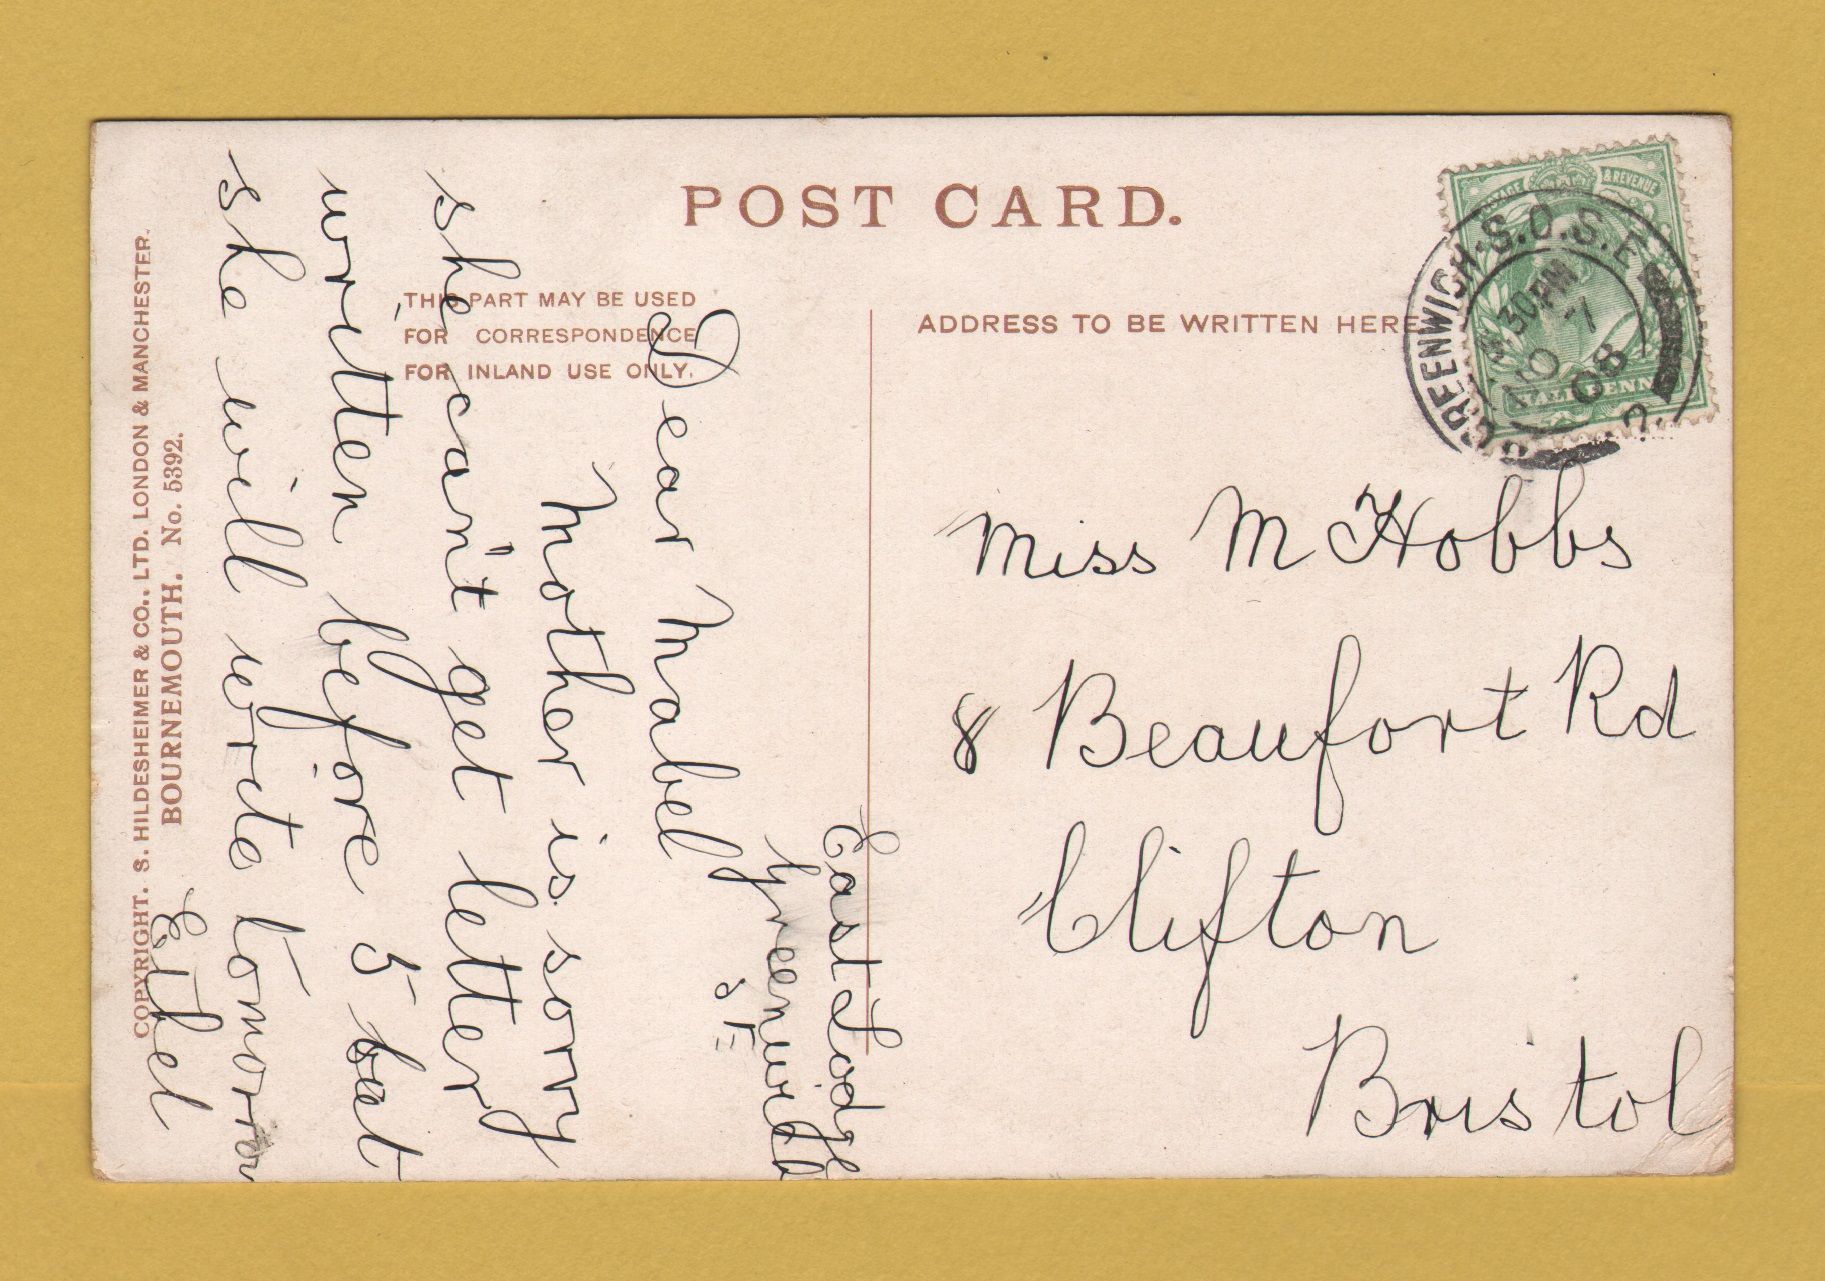 POST CARD.
THIS PART MAY BE USED
FOR CORRESPONDENCE
FOR INLAND USE ONLY.
ADDRESS TO BE WRITTEN HERE
COPYRIGHT. S. HILDESHEIMER & CO., LTD. LONDON & MANCHESTER.
BOURNEMOUTH. No. 5392.
East Lodge
Greenwich
S E
Dear Mabel
Mother is sorry
she can't get letter
written before 5 but
she will write tomorrow
Ethel
Miss M Hobbs
8 Beaufort Rd
Clifton
Bristol
& REVENUE
GREENWICH.S.O.S.E
30PM
NO
08